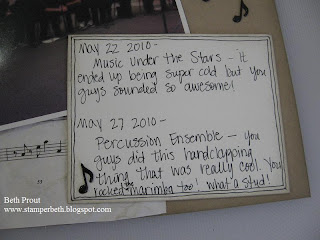 May 22 2010-
Music Under the Stars - it
ended up being super cold but you
guys sounded so awesome!
May 27 2010-
Percussion Ensemble - you
guys did this handclapping
thing that was really cool. You
rocked the marimba too! What a stud!
Beth Prout
www.stamperbeth.blogspot.com